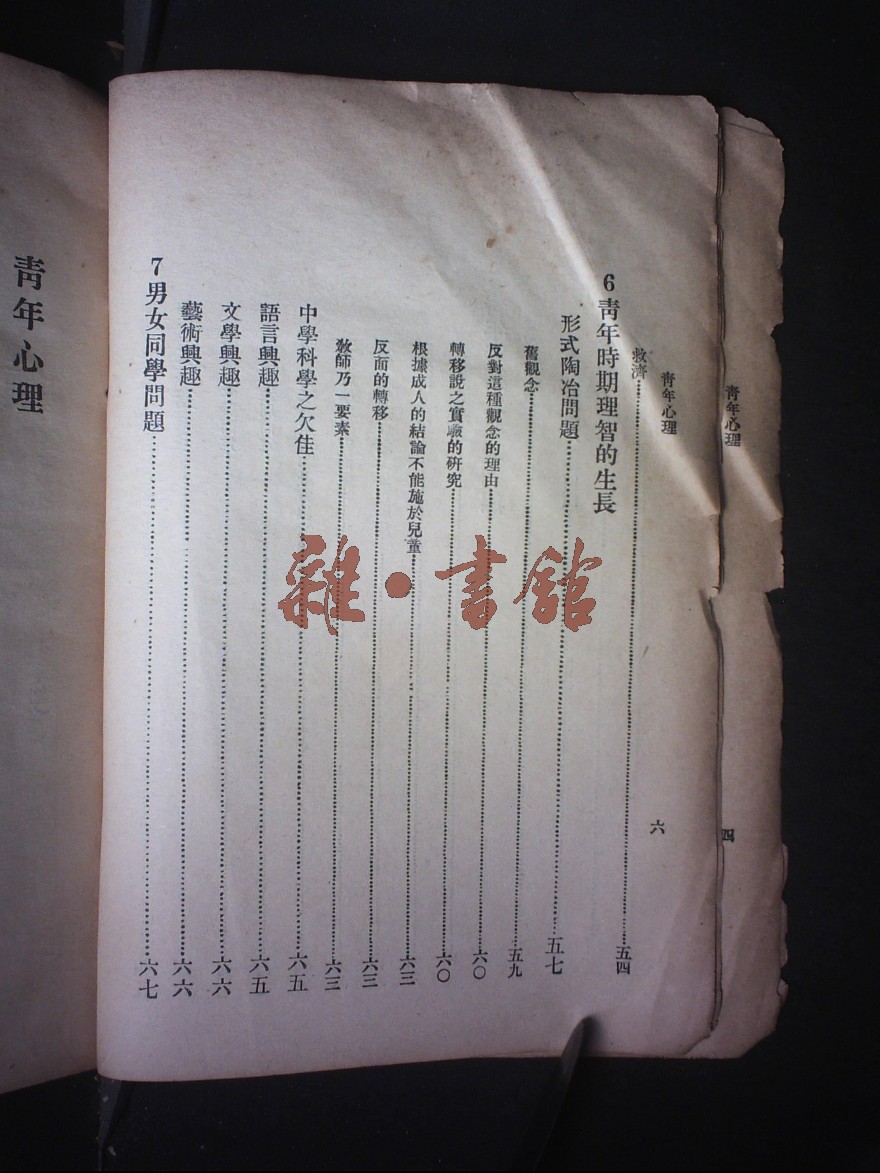 靑年心理
四
靑年心理
六
救濟……五四
6 靑年時期理智的生長
形式陶冶問題……五七
舊觀念……五九
反對這種觀念的理由……六〇
轉移說之實驗的硏究……六〇
根據成人的結論不能施於兒童……六三
反面的轉移……六三
敎師乃一要素……六三
中學科學之欠佳……六五
語言興趣……六五
文學興趣……六六
藝術興趣……六六
7 男女同學問題……六七
靑年心理
雜·書館